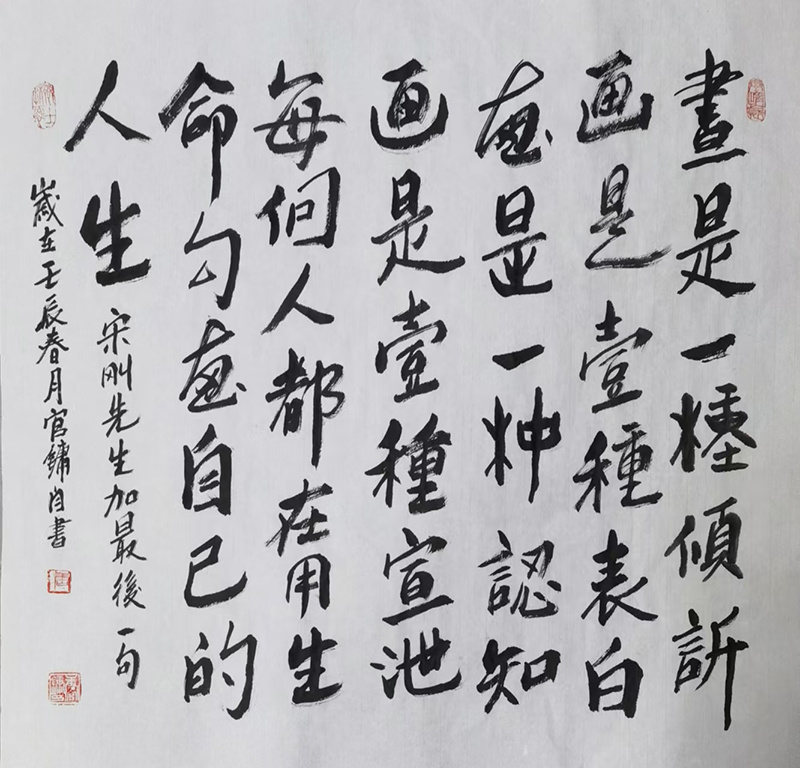 畫是一種傾訴
画是壹種表白
画是一种認知
画是壹種宣泄
每個人都在用生
命勾画自己的
人生
宋刚先生加最後一句
歲在壬辰春月官鏽自書